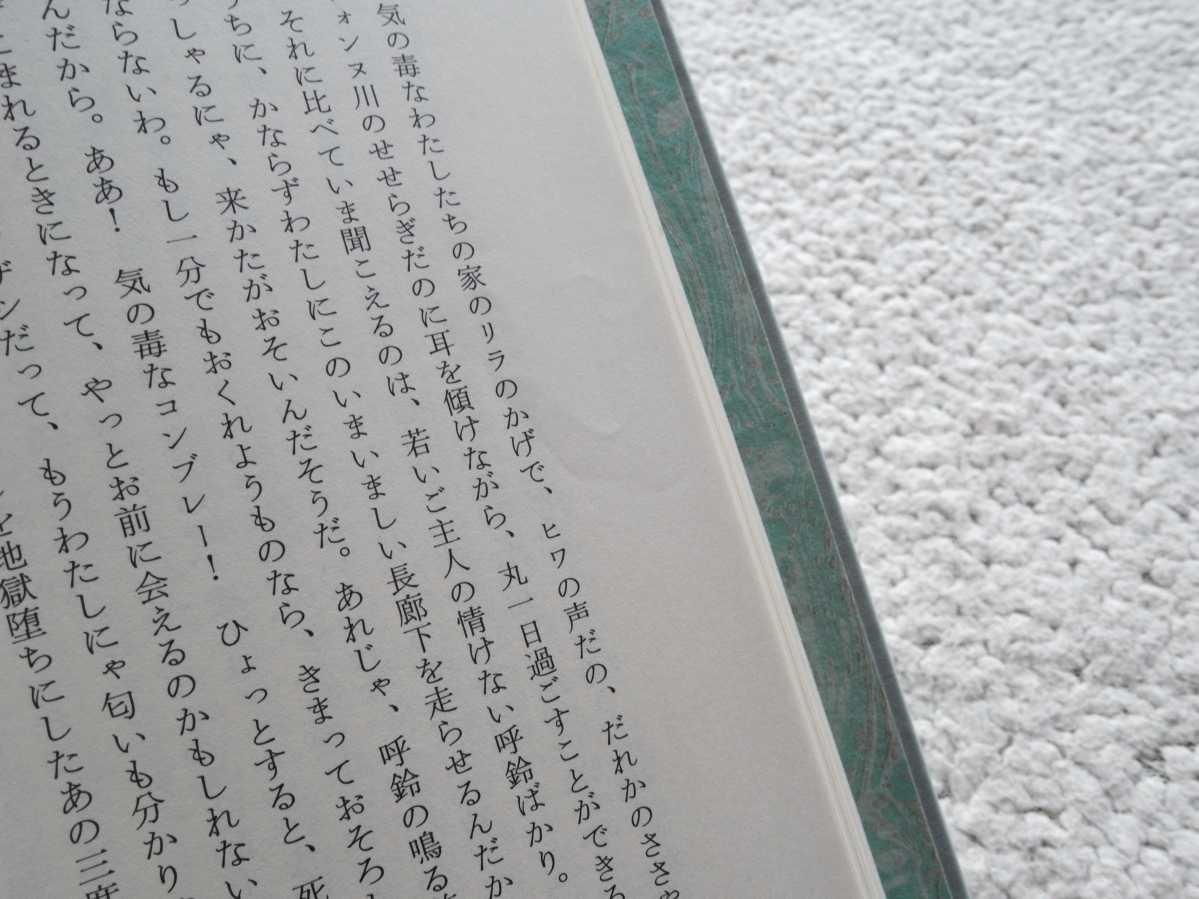 気の毒なわたしたちの家のリラのかげで、ヒワの声だの、だれかのささや
ォンヌ川のせせらぎだのに耳を傾けながら、丸一日過ごすことができる
それに比べていま聞こえるのは、若いご主人の情けない呼鈴ばかり。
ちに、かならずわたしにこのいまいましい長廊下を走らせるんだか
っしゃるにゃ、来かたがおそいんだそうだ。あれじゃ、呼鈴の鳴る
ならないわ。もし一分でもおくれようものなら、きまっておそろ
んだから。ああ！　気の毒なコンブレー！　ひょっとすると、死
こまれるときになって、やっとお前に会えるのかもしれない
ザンだって、もうわたしにゃ匂いも分かり
を地獄堕ちにしたあの三度